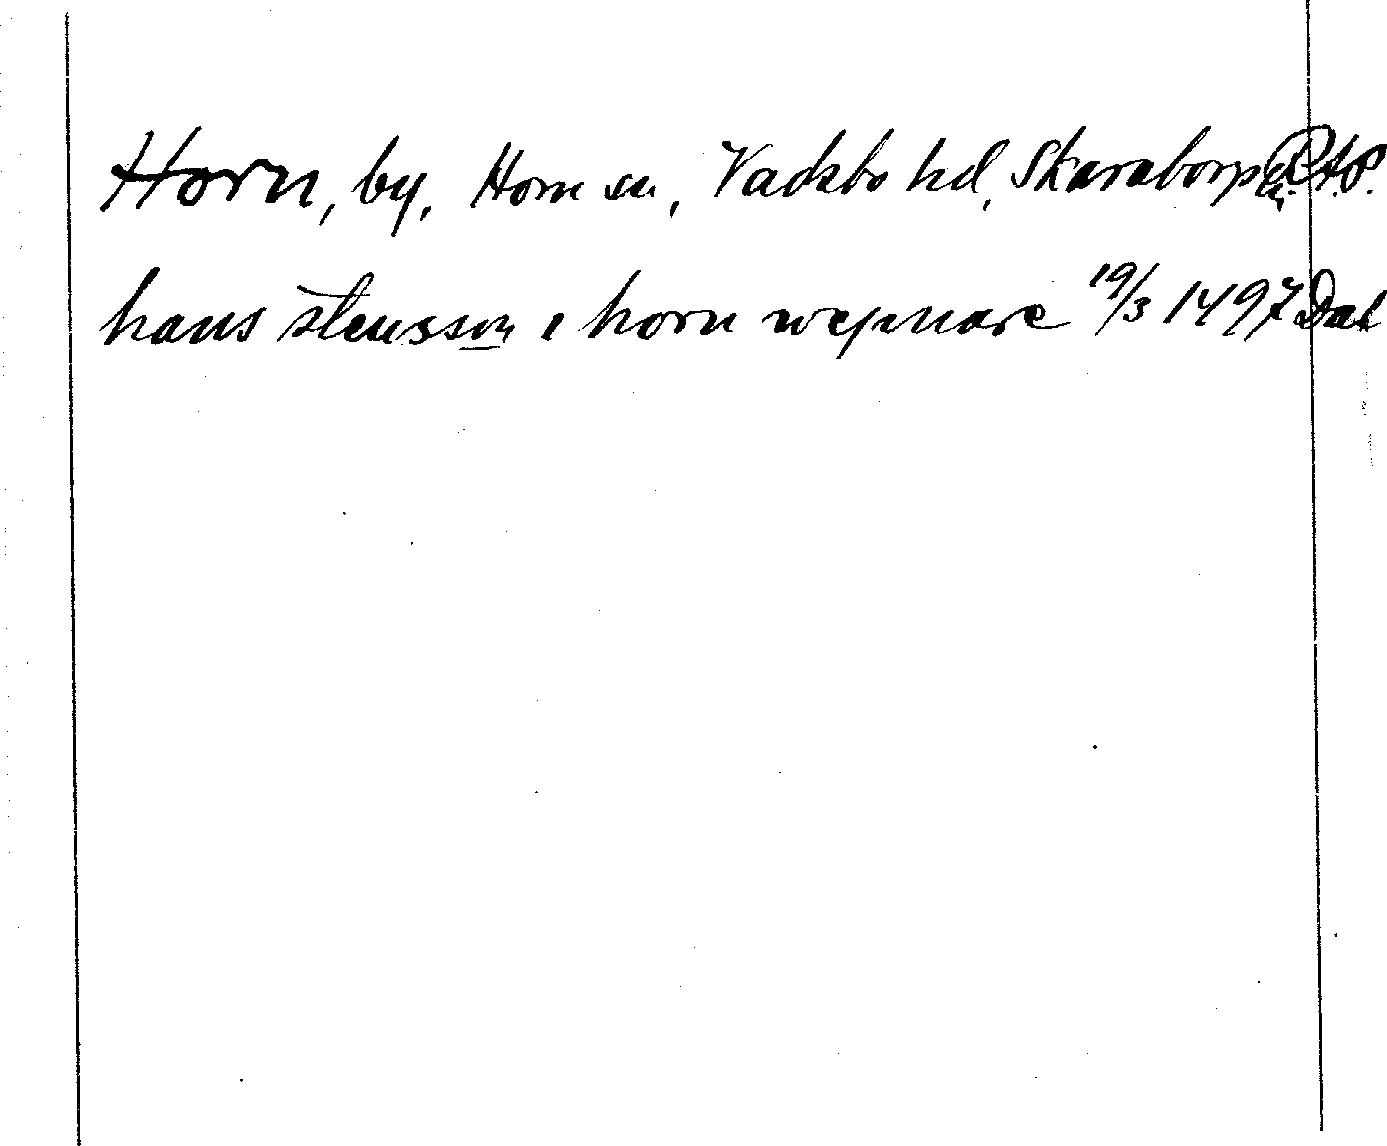 Horn, by, Horn sn, Vadsbo hd, Skaraborgs l. RAP.
hans stensson i horn wepnare 19/3 1497 Dat